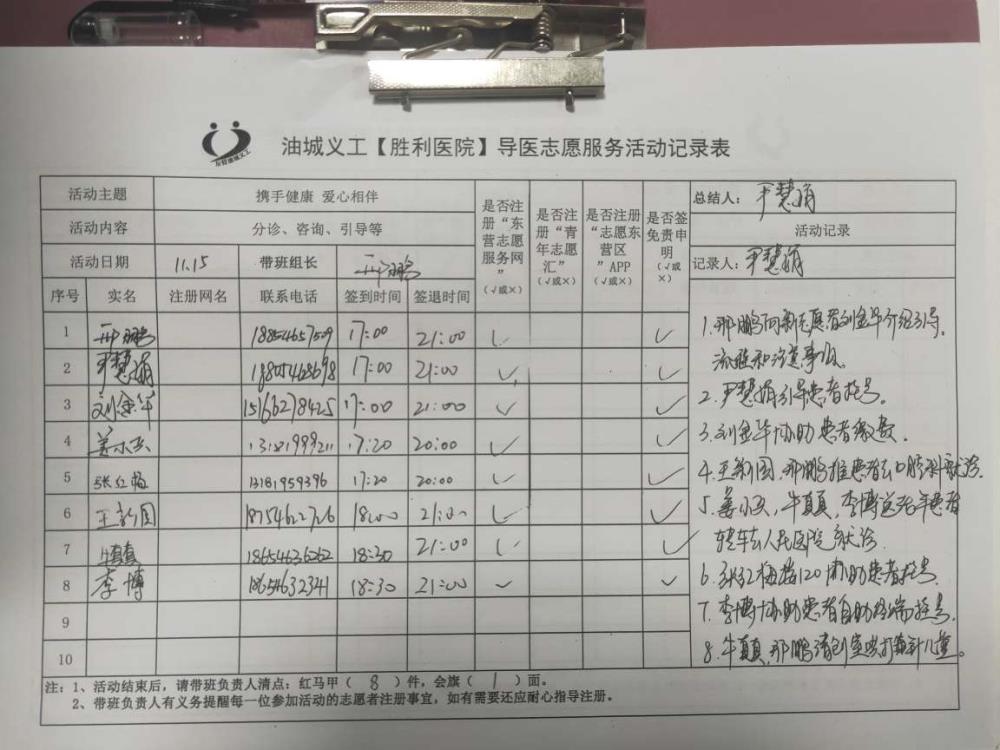 东营油城义工
油城义工【胜利医院】导医志愿服务活动记录表
活动主题 携手健康 爱心相伴
活动内容 分诊、咨询、引导等
活动日期 11.15 带班组长 邢鹏
序号 实名 注册网名 联系电话 签到时间 签退时间
是否注册“东营志愿服务网”（√或×）
是否注册“青年志愿汇”（√或×）
是否注册“志愿东营区”APP（√或×）
是否签免责申明（√或×）
总结人：尹慧娟
活动记录
记录人：尹慧娟
1 邢鹏 18854657509 17:00 21:00 √ √
2 尹慧娟 18805468698 17:00 21:00 √ √
3 刘金华 15166278425 17:00 21:00 √ √
4 姜小 13181999211 17:20 20:00 √ √
5 张红梅 13181959396 17:20 20:00 √ √
6 王新国 18754622726 18:00 21:00 √ √
7 牛真真 18654636262 18:30 21:00 √ √
8 李博 18654632341 18:30 21:00 √ √
9
10
1.邢鹏向新志愿者刘金华介绍引导
流程和注意事项。
2.尹慧娟引导患者挂号。
3.刘金华协助患者缴费。
4.王新国,邢鹏推患者去口腔科就诊.
5.姜小,牛真真,李博送老年患者
转车去人民医院就诊.
6.张红梅接120协助患者挂号.
7.李博协助患者自助终端挂号.
8.牛真真,邢鹏清创室打针儿童。
注：1、活动结束后，请带班负责人清点：红马甲（ 8 ）件，会旗（ 1 ）面。
2、带班负责人有义务提醒每一位参加活动的志愿者注册事宜，如有需要还应耐心指导注册。